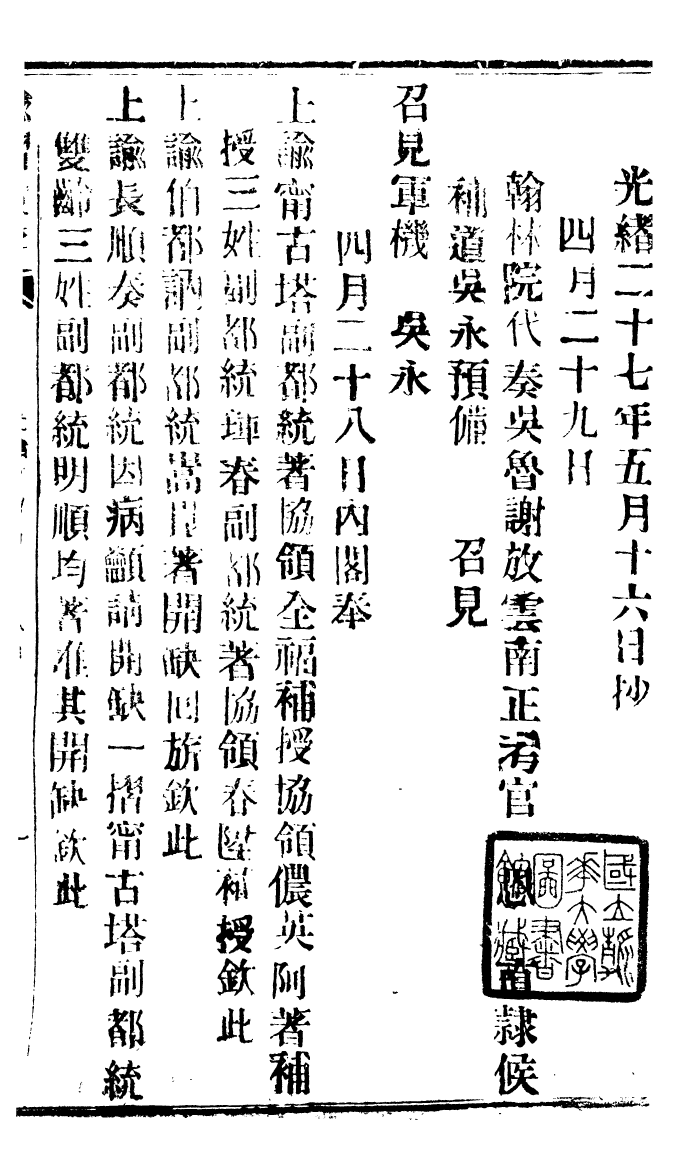 光緒二十七年五月十六日抄
四月二十九日
翰林院代奏吳魯謝放雲南正考官恩直隸候
補道吳永預備　召見
召見軍機　吳永
四月二十八日內閣奉
上諭甯古塔副都統著協領全福補授協領儂英阿著補
授三姓副都統琿春副都統著協領春陞補授欽此
上諭伯都訥副都統嵩崑著開缺回旗欽此
上諭長順奏副都統因病籲請開缺一摺甯古塔副都統
雙齡三姓副都統明順均著准其開缺欽此
國立清華大學圖書館藏